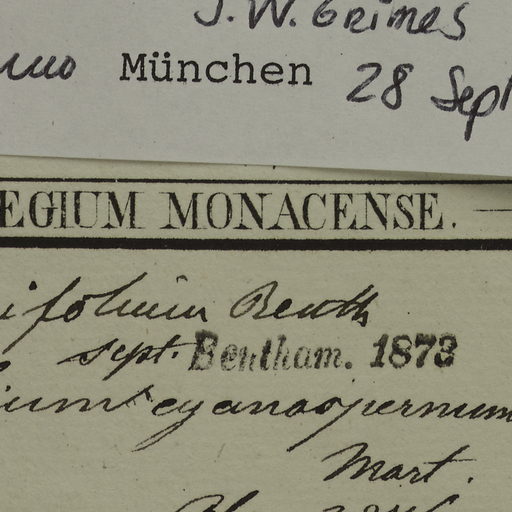 J.W. Grimes
München 28 Sept
EGIUM MONACENSE.
ifolium Benth
sept. Bentham. 1873
ium cyanospermum
Mart.